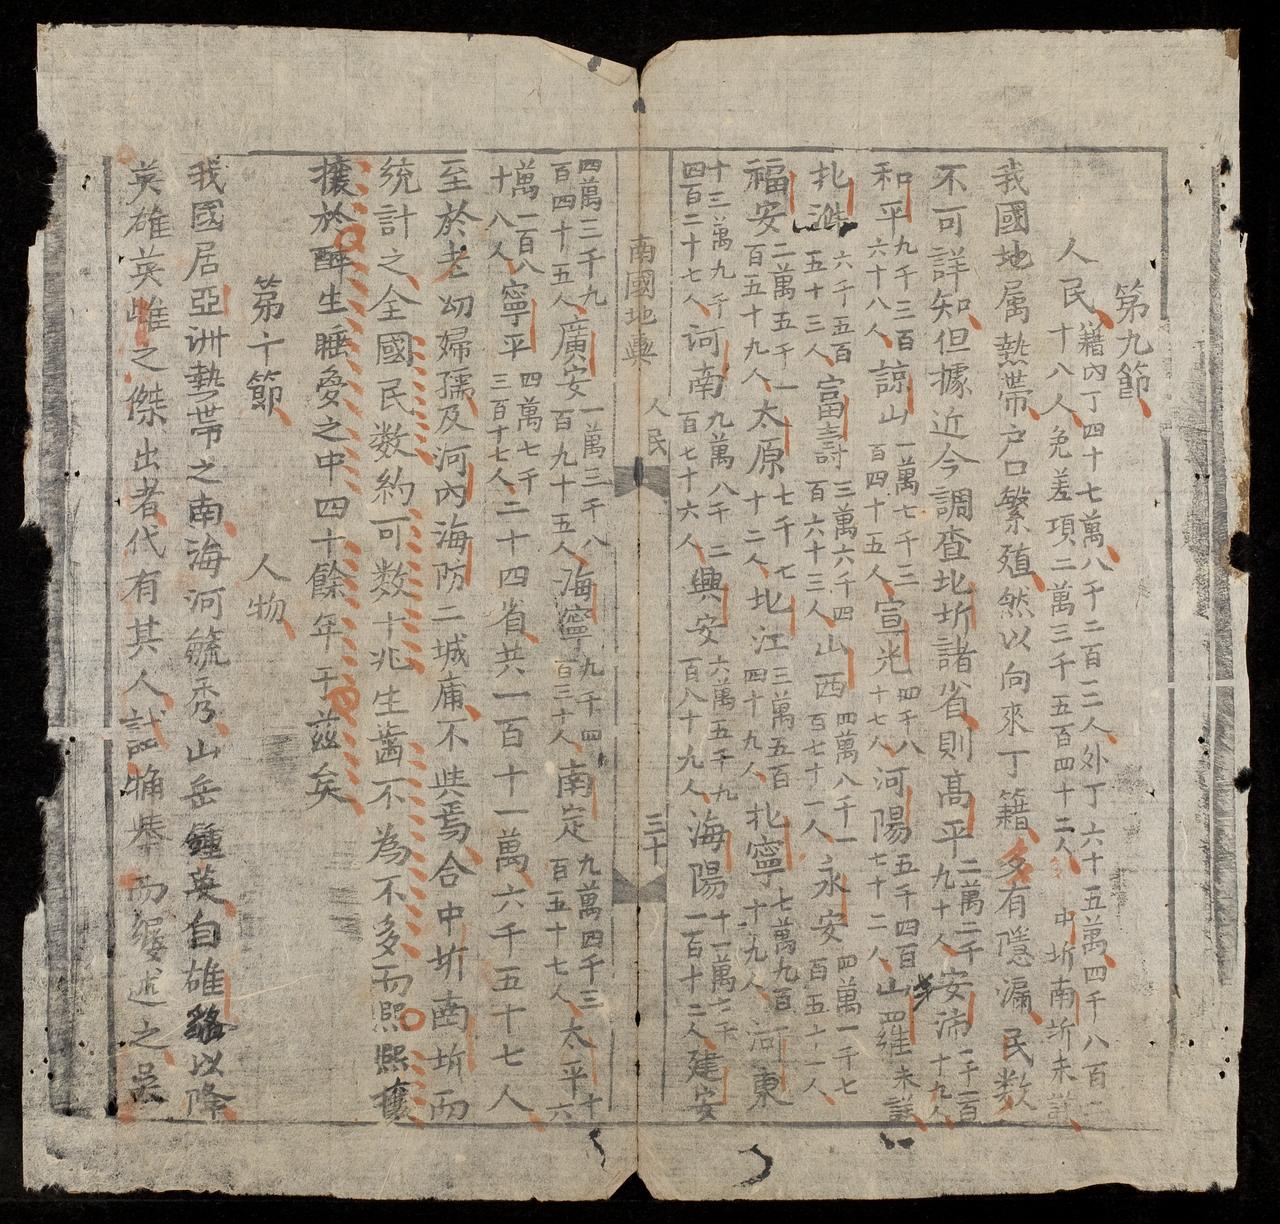 第九節
人民籍內丁四十七萬八千二百二人外丁六十五萬四千八百二
十八人免差項二萬三千五百四十二人中圻南圻未詳
我國地属熱帶户口繁殖然以向來丁籍多有隱漏民数
不可詳知但據近今調查北圻諸省則高平二萬二千九十人安沛一千一百十九人
和平九千三百六十八人諒山一萬七千三百四十五人宣光四千八十七人河陽五千四百七十二人山羅未詳
北𣴓六千五百五十三人富壽三萬六千四百六十三人山西四萬八千一百七十一人永安四萬一千七百五十一人
福安二萬五千一百五十九人太原七千七十二人北江三萬五百四十九人北寧七萬九百十九人河東
十三萬九千四百二十七人河南九萬八千二百七十六人興安六萬五千九百八十九人海陽十一萬七千一百十二人建安
南國地輿 人民 三十
四萬三千九百四十五人廣安一萬三千八百九十五人海寧九千四百三十人南定九萬四千三百五十七人太平十六
萬一百八十八人寧平四萬七千三百十七人二十四省共一百十一萬六千五十七人
至於老幼婦孺及河內海防二城庸不與焉合中圻南圻而
統計之全國民数約可数十兆生齒不為不多而熙熙攘
攘於醉生睡夢之中四十餘年于茲矣
第十節 人物
我國居亞洲熱帶之南海河毓秀山岳鍾英自雄貉以降
英雄英雌之傑出者代有其人試畧舉而縷述之吳